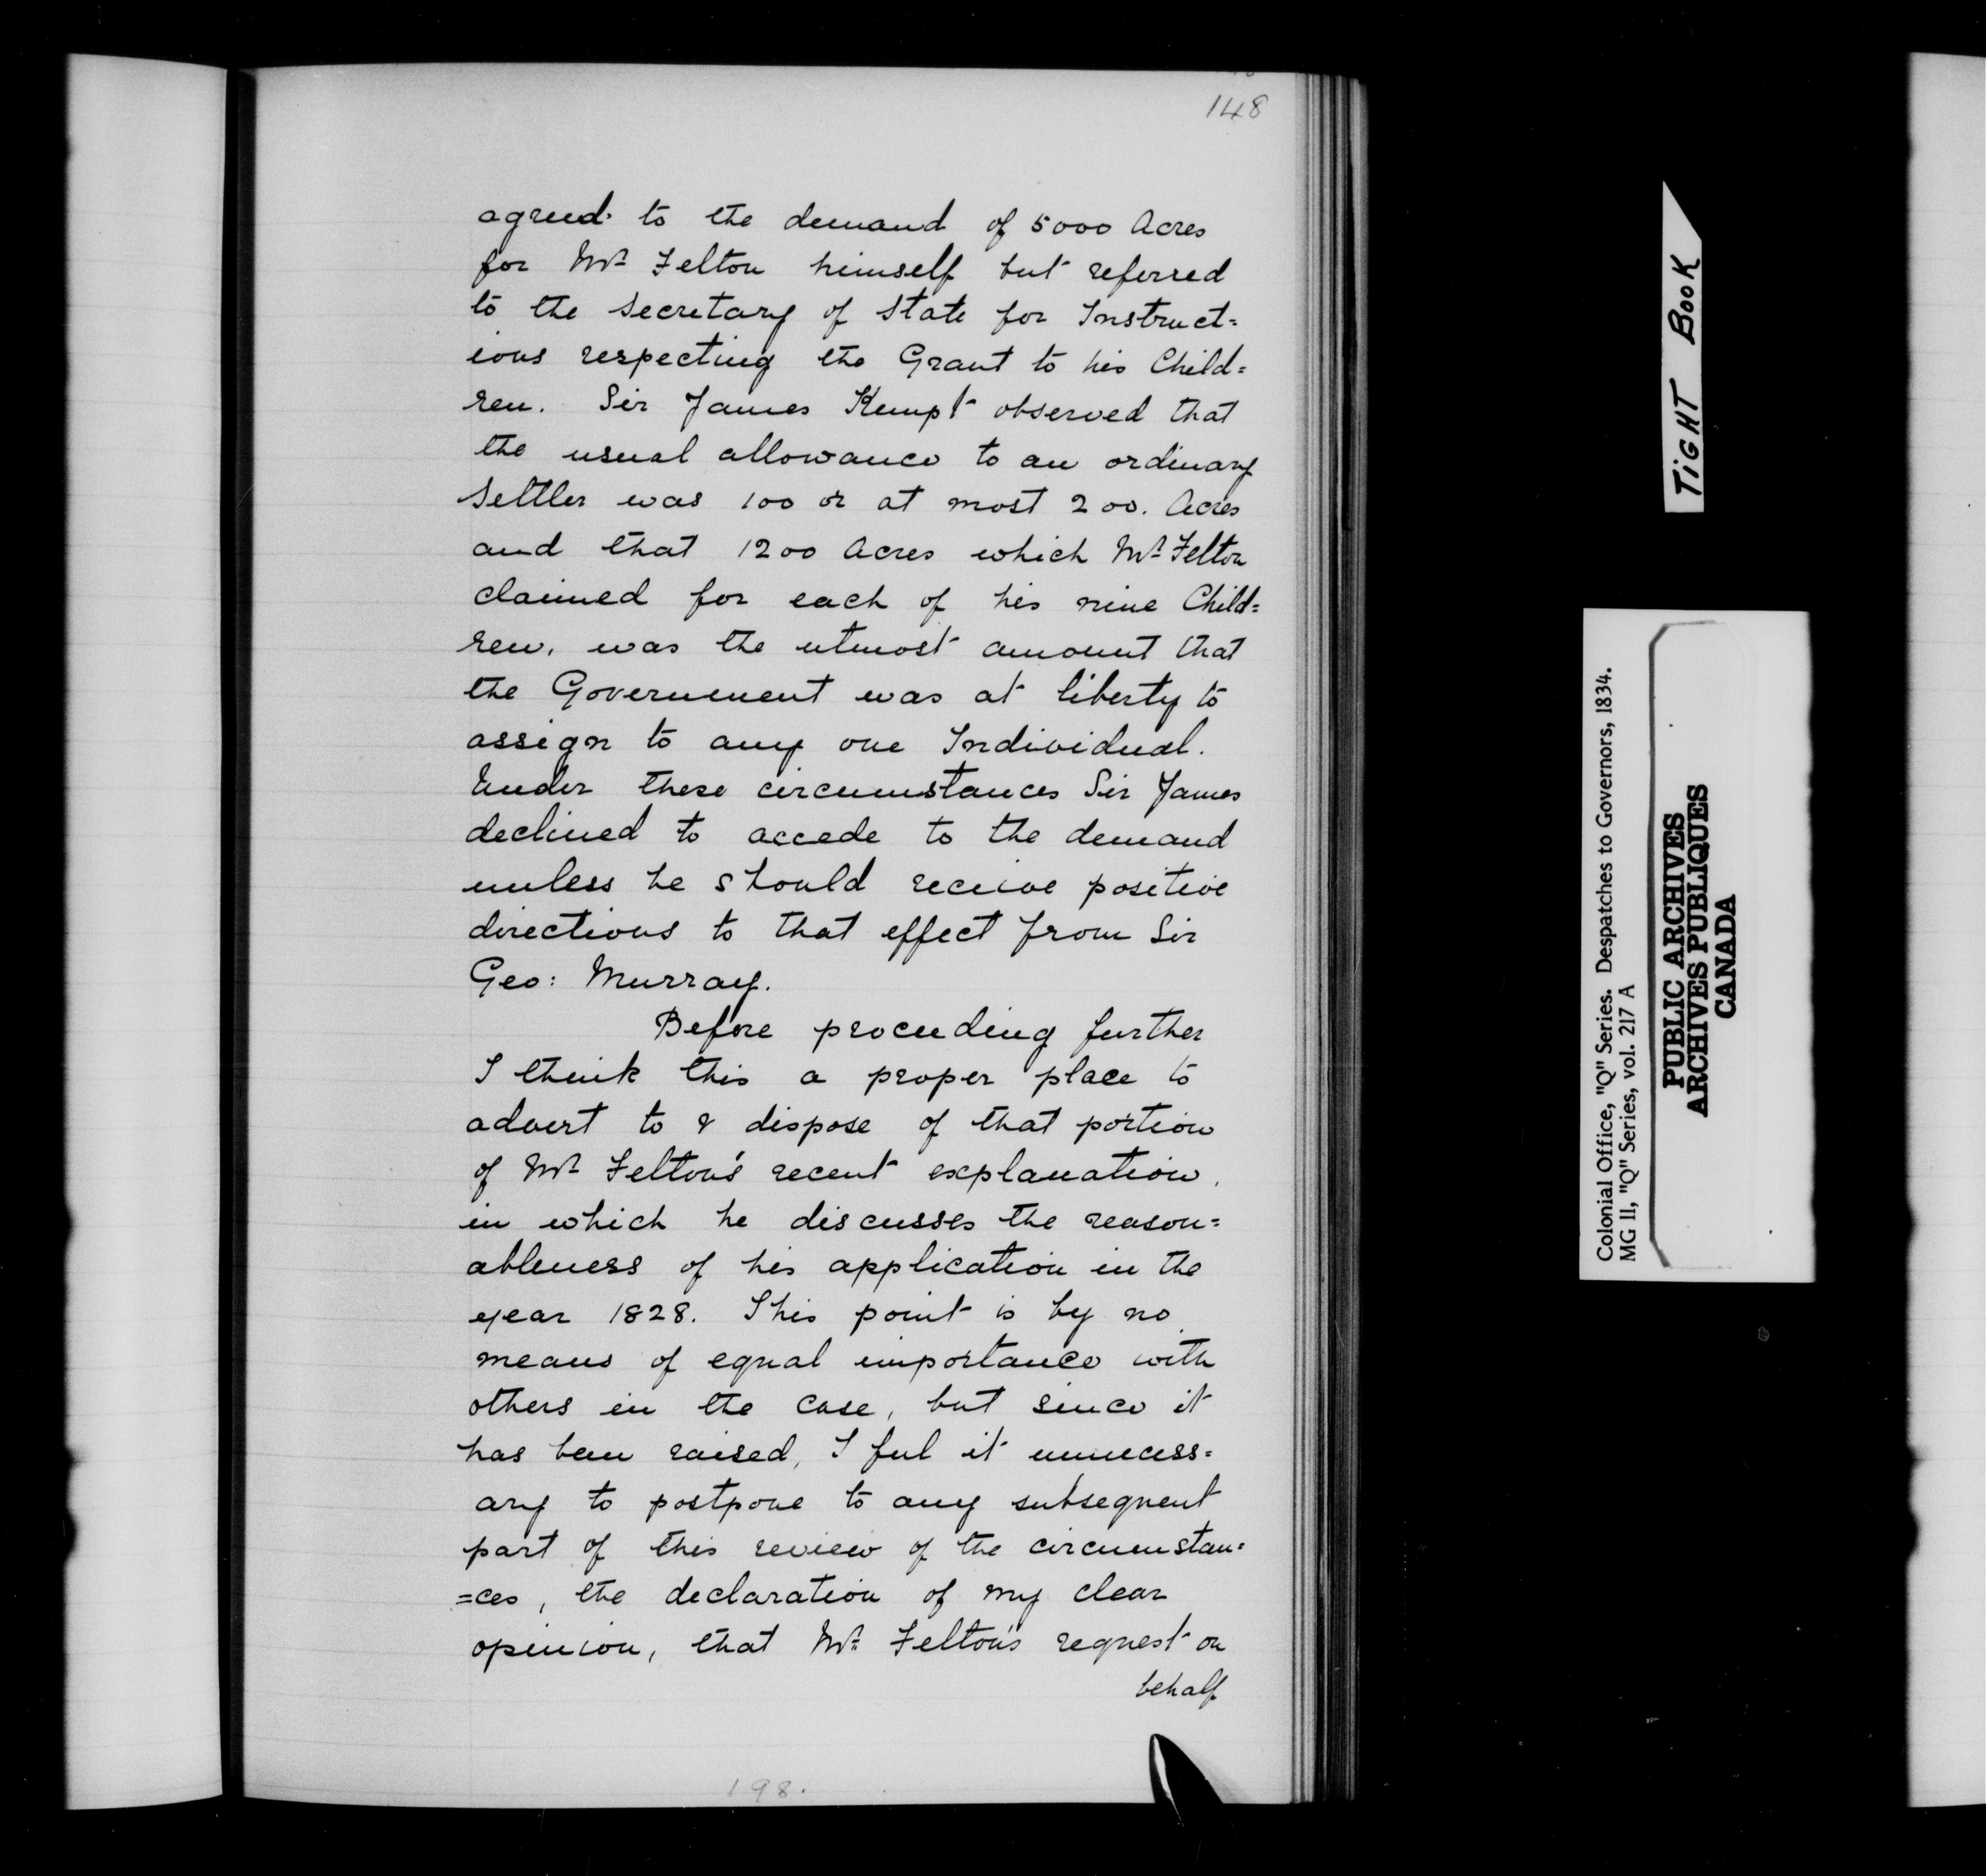 148
agreed to the demand of 5000 Acres
for Mr Felton himself but referred
to the Secretary of State for Instruct=
ions respecting the Grant to his Child=
ren. Sir James Kempt observed that
the usual allowance to an ordinary
Settler was 100 or at most 200. Acres
and that 1200 Acres which Mr Felton
claimed for each of his nine Child=
ren, was the utmost amount that
the Government was at liberty to
assign to any one Individual.
Under these circumstances Sir James
declined to accede to the demand
unless he should receive positive
directions to that effect from Sir
Geo: Murray.
Before proceeding further
I think this a proper place to
advert to & dispose of that portion
of Mr Felton's recent explanation,
in which he discusses the reason=
ableness of his application in the
year 1828. This point is by no
means of equal importance with
others in the case, but since it
has been raised, I feel it unnecess=
ary to postpone to any subsequent
part of this review of the circumstan=
=ces, the declaration of my clear
opinion, that Mr Felton's request on
behalf
198.
TIGHT BOOK
Colonial Office, "Q" Series. Despatches to Governors, 1834.
MG 11, "Q" Series, vol. 217 A
PUBLIC ARCHIVES
ARCHIVES PUBLIQUES
CANADA